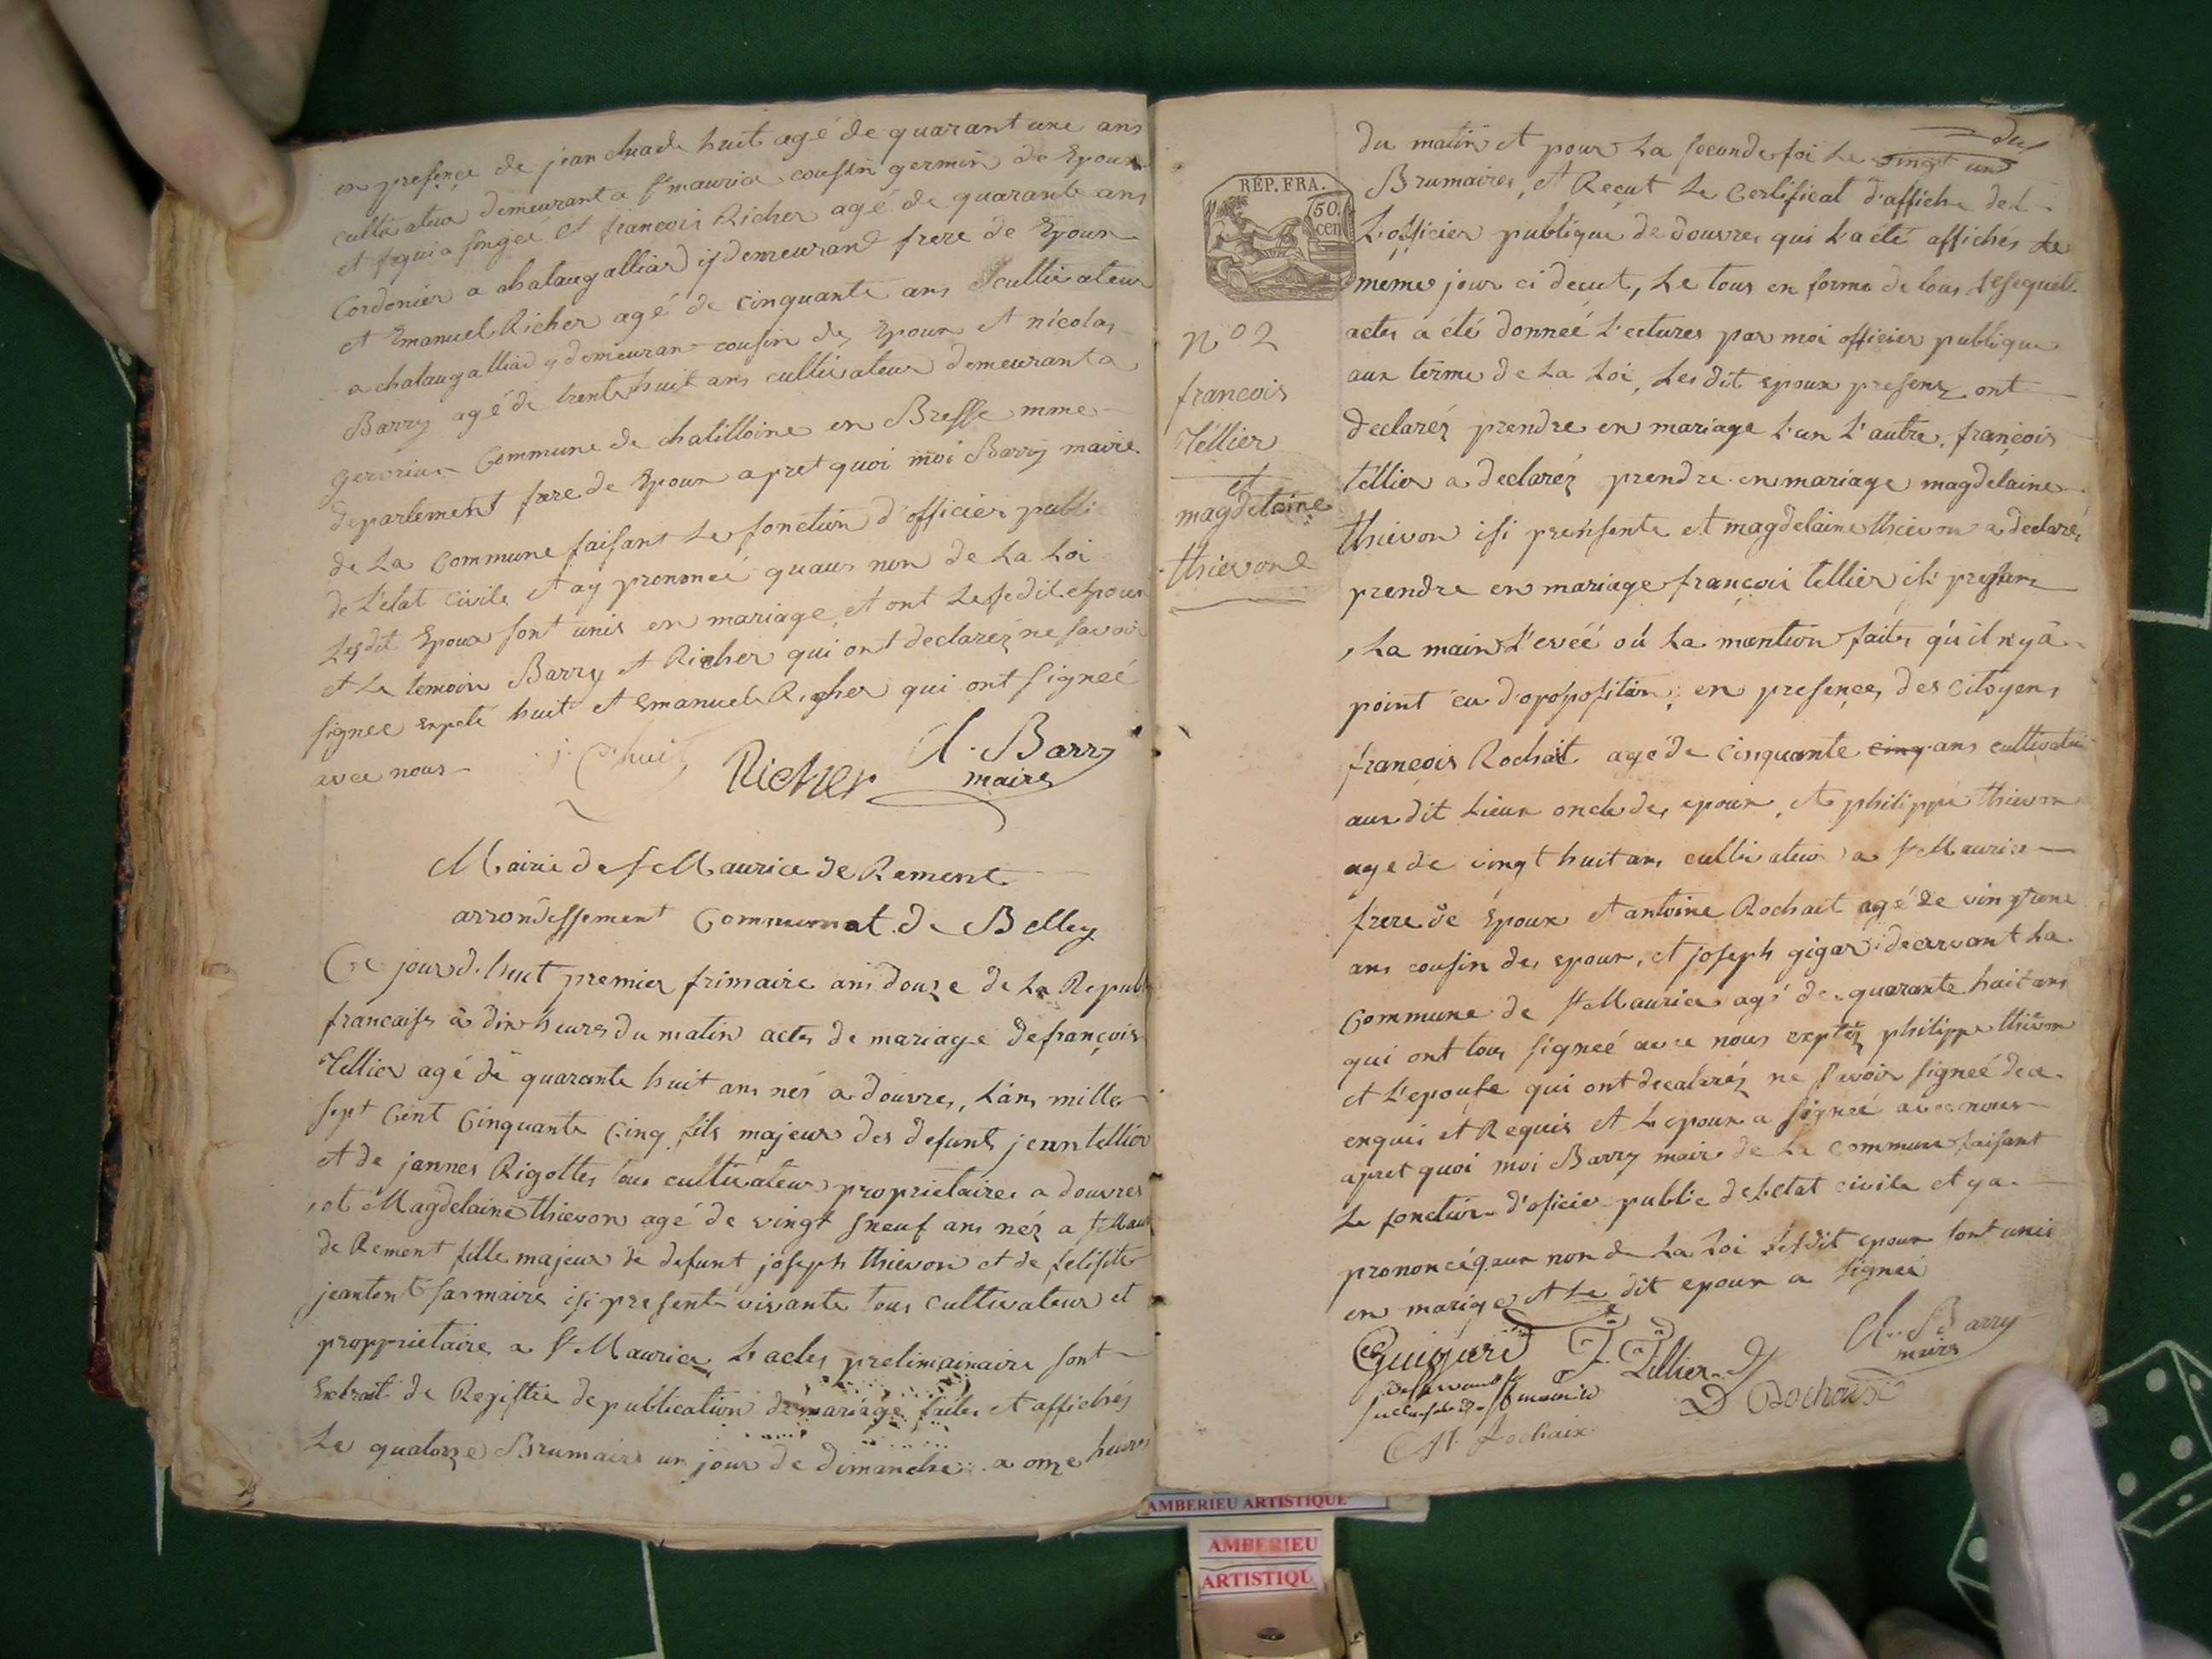 en presence de jean chuade huit agé de quarant une ans
cultivateur demeurant a st maurice cousin germin de Epoux
et francois Richer agé de quarante ans
Cordonier a chataugalliar y demeurant frere de Epoux
et Emanuel Richer agé de cinquante ans cultivateur
a chataugalliad y demeuran cousin de Epoux et nicolas
Barry agé de trente huit ans cultivateur demeurant a
Commune de chatilloine en Bresse mme
departement frere de Epoux apret quoi moi Barry maire
de La Commune faisant Le fonction d'officier publi
de L'etat civile et ay prononcé quaux non de La Loi
Lesdit Epoux sont unis en mariage, et ont Lesdit epoux
et Le temoin Barry et Richer qui ont declaréz ne savoir
signee expeté huit et Emanuel Richer qui ont signeé
avec nous
j. Chuit Richer Cl. Barry
maire
Mairie de st Maurice de Rement
arrondissement Communat de Belley
Ce jourd'huit premier frimaire ans douze de La Repub
francaise à dix heures du matin actes de mariage de françois
Tellier agé de quarante huit ans nés a douvres, L'ans mille
sept Cent Cinquante Cinq fils majeur des defunts jean tellier
et de jannes Rigottes tous cultivateur propriétaires a douvres
, et Magdelaine thievon agé de vingt neuf ans néz a st Mau
de Rement fille majeur de defunt joseph thievon et de felisite
jeantent sarmaire isi present vivante tous cultivateur et
propprietaire a st Maurice Le actes preliminaire sont
Extrait de Registre de publication de mariage faites et affichés
Le quatorze Brumaire un jour de dimanche a onze heures
du
du matin et pour La seconde foi Le vingt un
Brumaires, et Reçut Le Certificat d'affiche de
L'officier publique de douvres qui L'a été affichés Le
RÉP. FRA.
50
cen
meme jour ci decut, Le tous en forme de tous desequelt
n° 2
francois
Tellier
et
magdelaine
thievond
actes a été donneé L'ectures par moi officier publique
aux terme de La Loi, Lesdit epoux presens ont
declaréz prendre en mariage L'un L'autre, françois
tellier a declaréz prendre en mariage magdelaine
thievon isi presente et magdelaine thievon a declaré
prendre en mariage françois tellier isi presant
, La main L'evéé où La mention faites qu'il n'y à
point eu d'oposposition; en presences des Citoyens
françois Rochait agé de Cinquante cinq ans cultivateur
aux dit Lieux oncle des epoux, et philippe thievon
age de vingt huit ans cultivateur a st Maurice
frere de Epoux et antoine Rochait agé de vingt une
ans cousin des epoux, et joseph gigar decervant La
Commune de st Maurice agé de quarante huit ans
qui ont tous signeé avec nous exptéz philippe thievon
et L'epouse qui ont decalaréz ne savoir signeé de ce
enquis et Requis et L'epoux a signeé avec nous
apret quoi moi Barry maire de La Commune faisant
Le fonction d'oficier public de L'etat civile et ya
prononcé qaux non de La Loi Lesdit epoux sont unis
en mariage et Le dit epoux a signeé
Guigard F. Tellier Cl. Barry
maire
desservant
succursale de st maurice
Rochaix
At. Rochaix
AMBERIEU ARTISTIQUE
AMBERIEU
ARTISTIQU